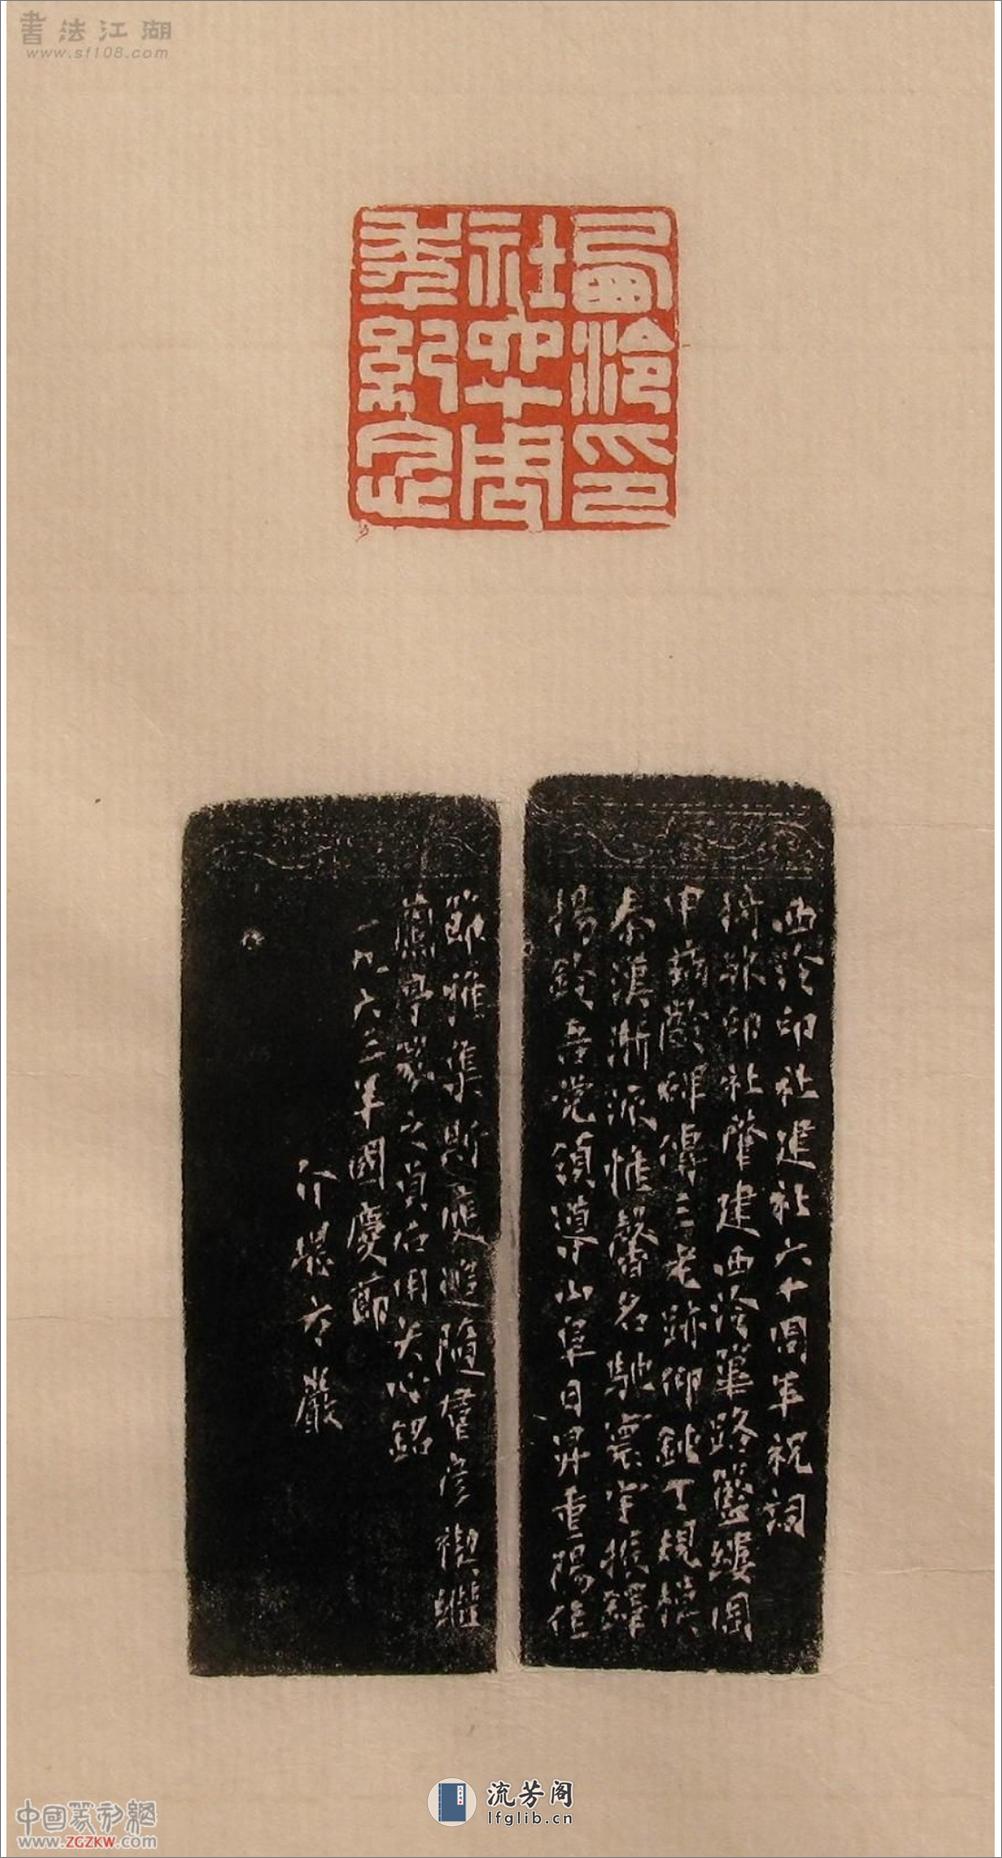 書法江湖
www.sf108.com
西泠印
社六十周
年紀念
西泠印社建社六十周年祝詞
猗歟印社肇建西泠篳路籃縷開
甲 齡碑傳三老跡仰鈍丁規橅
秦漢浙派惟馨名馳寰宇猴鐸
揚鈴吾党領導山阜日昇重陽佳
節雅集斯應追隨群彥禊繼
蘭亭篆之貞石用矢心銘
一九六三年國慶節
介堪方巖
中國篆刻網
www.ZGZKW.com
流芳阁
lfglib.cn